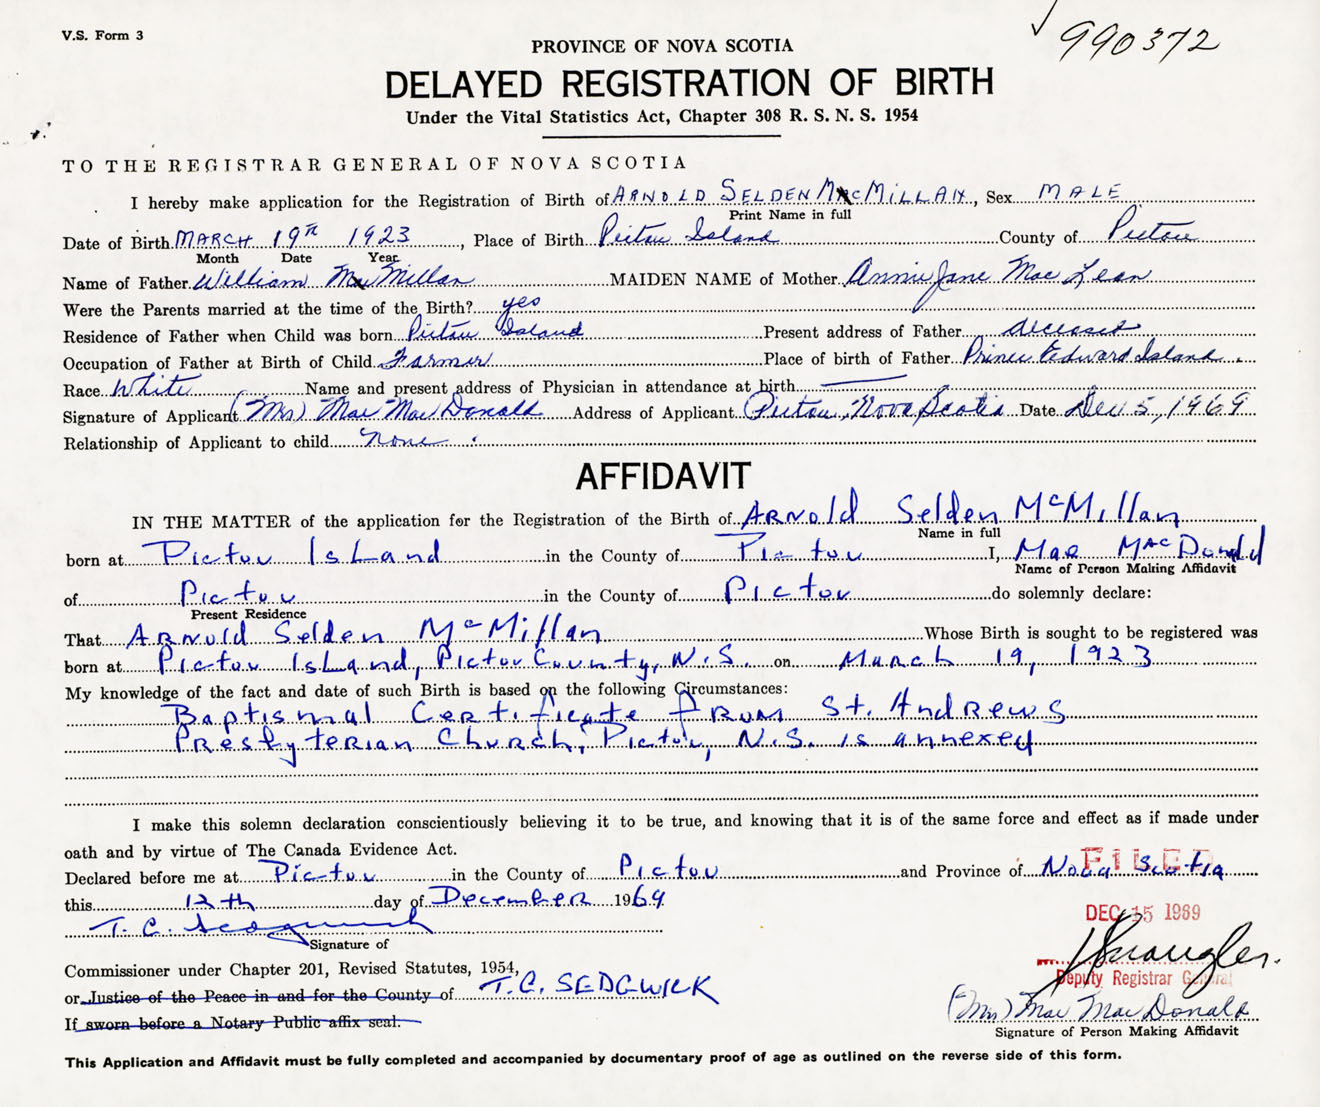 V.S. Form 3
990372
PROVINCE OF NOVA SCOTIA
DELAYED REGISTRATION OF BIRTH
Under the Vital Statistics Act, Chapter 308 R. S. N. S. 1954
TO THE REGISTRAR GENERAL OF NOVA SCOTIA
I hereby make application for the Registration of Birth of ARNOLD SELDEN McMILLAN, Sex MALE
Print Name in full
Date of Birth MARCH 19th 1923, Place of Birth Pictou Island County of Pictou
Month Date Year
Name of Father William McMillan MAIDEN NAME of Mother Annie Jane MacLean
Were the Parents married at the time of the Birth? yes
Residence of Father when Child was born Pictou Island Present address of Father deceased
Occupation of Father at Birth of Child Farmer Place of birth of Father Prince Edward Island
Race White Name and present address of Physician in attendance at birth
Signature of Applicant (Mrs) Mae MacDonald Address of Applicant Pictou, Nova Scotia Date Dec 5, 1969
Relationship of Applicant to child None
AFFIDAVIT
IN THE MATTER of the application for the Registration of the Birth of Arnold Selden McMillan
Name in full
born at Pictou Island in the County of Pictou I, Mae MacDonald
Name of Person Making Affidavit
of Pictou in the County of Pictou do solemnly declare:
Present Residence
That Arnold Selden McMillan Whose Birth is sought to be registered was
born at Pictou Island, Pictou County, N.S. on March 19, 1923
My knowledge of the fact and date of such Birth is based on the following Circumstances:
Baptismal Certificate from St. Andrews
Presbyterian Church, Pictou, N.S. is annexed
I make this solemn declaration conscientiously believing it to be true, and knowing that it is of the same force and effect as if made under
oath and by virtue of The Canada Evidence Act.
Declared before me at Pictou in the County of Pictou and Province of Nova Scotia
FILED
this 12th day of December 1969
DEC 15 1969
T. C. Sedgwick
Signature of
Commissioner under Chapter 201, Revised Statutes, 1954,
Deputy Registrar General
or Justice of the Peace in and for the County of T. C. SEDGWICK
(Mrs) Mae MacDonald
If sworn before a Notary Public affix seal.
Signature of Person Making Affidavit
This Application and Affidavit must be fully completed and accompanied by documentary proof of age as outlined on the reverse side of this form.